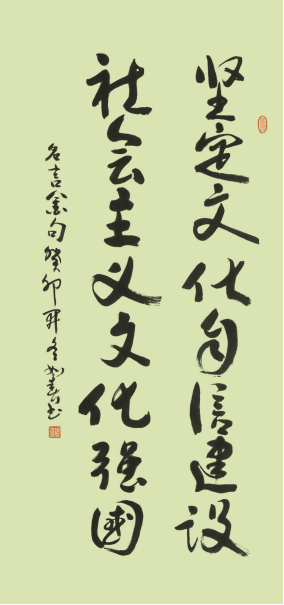 坚定文化自信建设
社会主义文化强国
名言金句癸卯年冬如春书